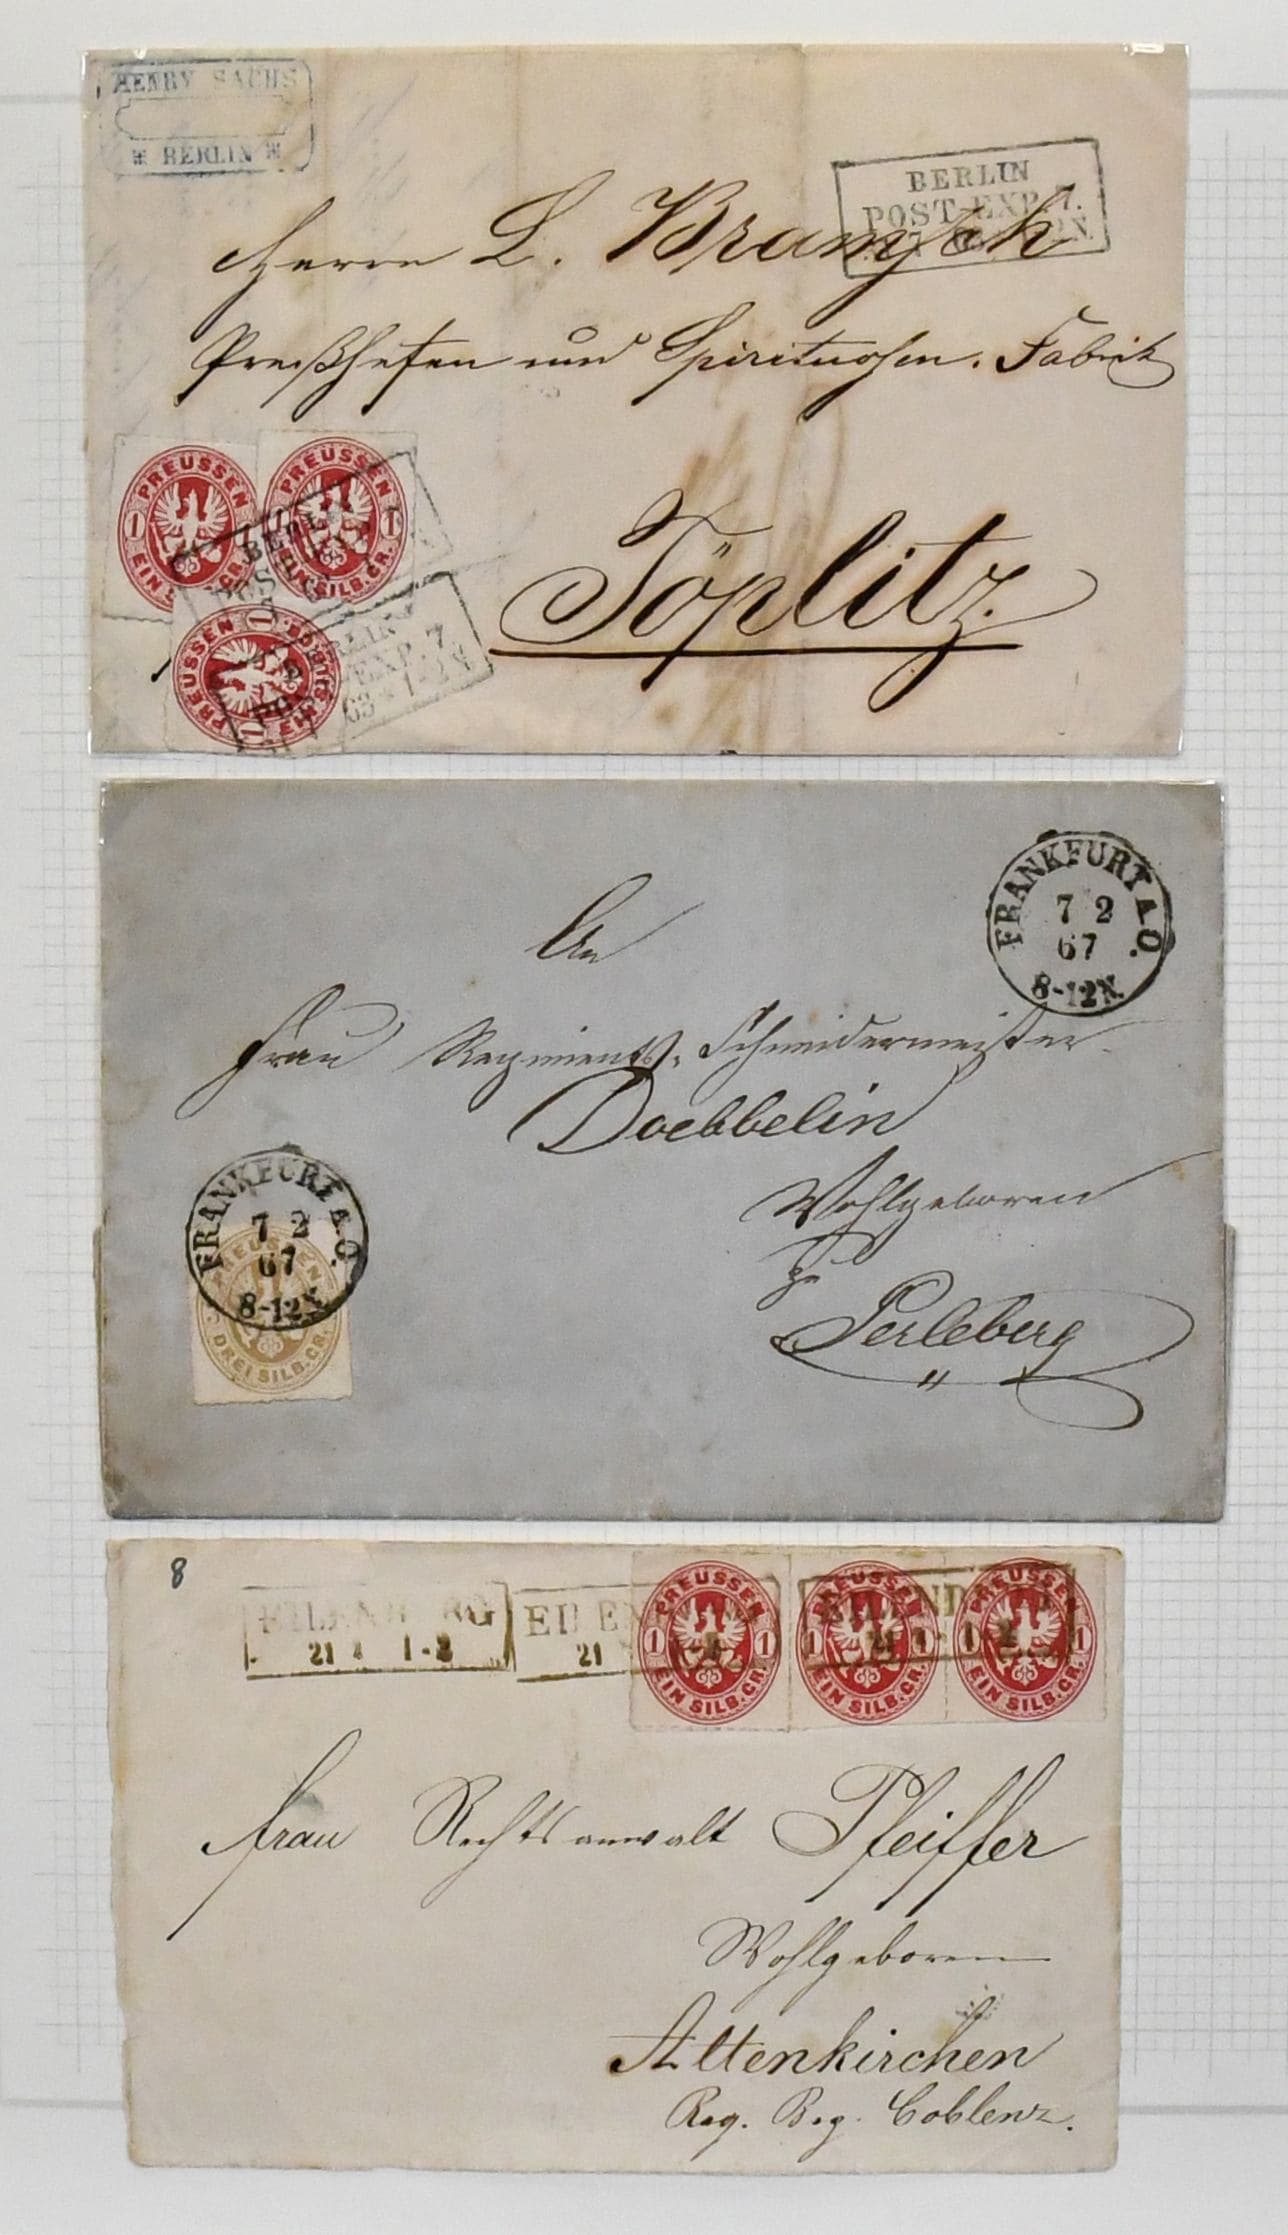 HENRY SACHS
* BERLIN *
BERLIN
POST-EXP. 7.
Herrn L. Bramsch
Preßhefen und Spirituosen. Fabrik
Töplitz.
PREUSSEN
1 1
EIN SILB.GR.
PREUSSEN
1 1
EIN SILB.GR.
PREUSSEN
1 1
EIN
BERLIN
POST-EXP. 7.
63 * 1-2 N.
FRANKFURT A.O.
7 2
67
8-12N.
An
Frau Regiments-Schneidermeister
Doebbelin
Wohlgeboren
zu
Perleberg
FRANKFURT A.O.
7 2
67
8-12N.
PREUSSEN
DREI SILB.GR.
8
EILENBURG
21 4 1-2
EILENBURG
21
EILENBURG
21 4
PREUSSEN
1 1
EIN SILB.GR.
PREUSSEN
1 1
EIN SILB.GR.
PREUSSEN
1 1
EIN SILB.GR.
Frau Rechtsanwalt Pfeiffer
Wohlgeboren
Altenkirchen
Reg. Bez. Coblenz.